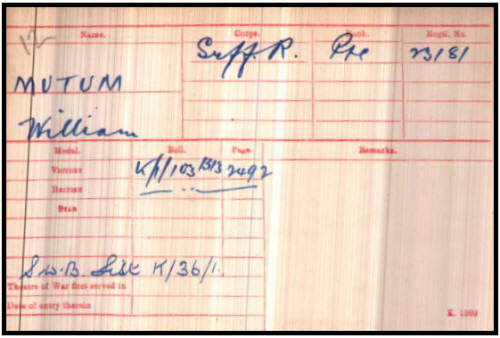 12
Name. Corps. Rank. Regtl. No.
Suff. R. Pte 23181
MUTUM
William
Medal. Roll. Page. Remarks.
VICTORY K/1/103 B13 2492
BRITISH
STAR
S.W.B. List K/36/1.
Theatre of War first served in
Date of entry therein
K. 1380